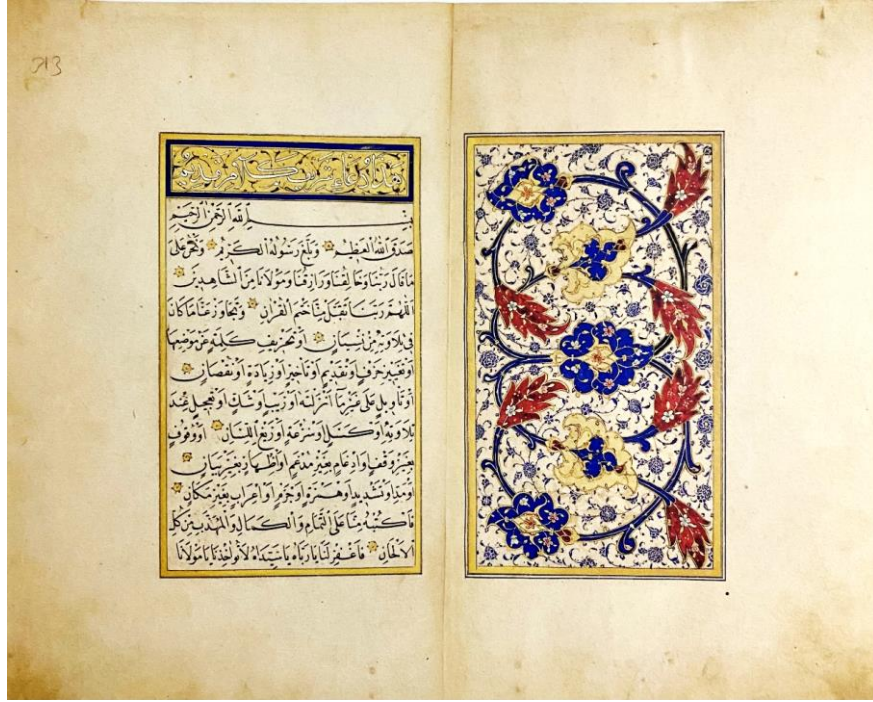 هذا دعاء شريف كلام قديم
بسم الله الرحمن الرحيم
صَدَقَ اللهُ الْعَظِيمُ وَبَلَّغَ رَسُولُهُ الْكَرِيمُ وَنَحْنُ عَلَى
مَا قَالَ رَبُّنَا وَخَالِقُنَا وَرَازِقُنَا وَمَوْلَانَا مِنَ الشَّاهِدِينَ
اَللّٰهُمَّ رَبَّنَا تَقَبَّلْ مِنَّا خَتْمَ الْقُرْاٰنِ وَتَجَاوَزْ عَنَّا مَا كَانَ
فِي تِلَاوَتِهِ مِنْ نِسْيَانٍ أَوْ تَحْرِيفِ كَلِمَةٍ عَنْ مَوْضِعِهَا
أَوْ تَغْيِيرِ حَرْفٍ أَوْ تَقْدِيمٍ أَوْ تَأْخِيرٍ أَوْ زِيَادَةٍ أَوْ نُقْصَانٍ
أَوْ تَأْوِيلٍ عَلَى غَيْرِ مَا أَنْزَلْتَهُ أَوْ رَيْبٍ أَوْ شَكٍّ أَوْ تَعْجِيلٍ عِنْدَ
تِلَاوَتِهِ أَوْ كَسَلٍ أَوْ سُرْعَةٍ أَوْ زَيْغِ اللِّسَانِ أَوْ وُقُوفٍ
بِغَيْرِ وَقْفٍ أَوْ إِدْغَامٍ بِغَيْرِ مُدْغَمٍ أَوْ إِظْهَارٍ بِغَيْرِ بَيَانٍ
أَوْ مَدٍّ أَوْ تَشْدِيدٍ أَوْ هَمْزَةٍ أَوْ جَزْمٍ أَوْ إِعْرَابٍ بِغَيْرِ مَكَانٍ
فَاكْتُبْهُ مِنَّا عَلَى التَّمَامِ وَالْكَمَالِ وَالْمُهَذَّبِ مِنْ كُلِّ
الْأَلْحَانِ فَاغْفِرْ لَنَا يَا رَبَّاهُ يَا سَيِّدَاهُ لَا تُؤَاخِذْنَا يَا مَوْلَانَا